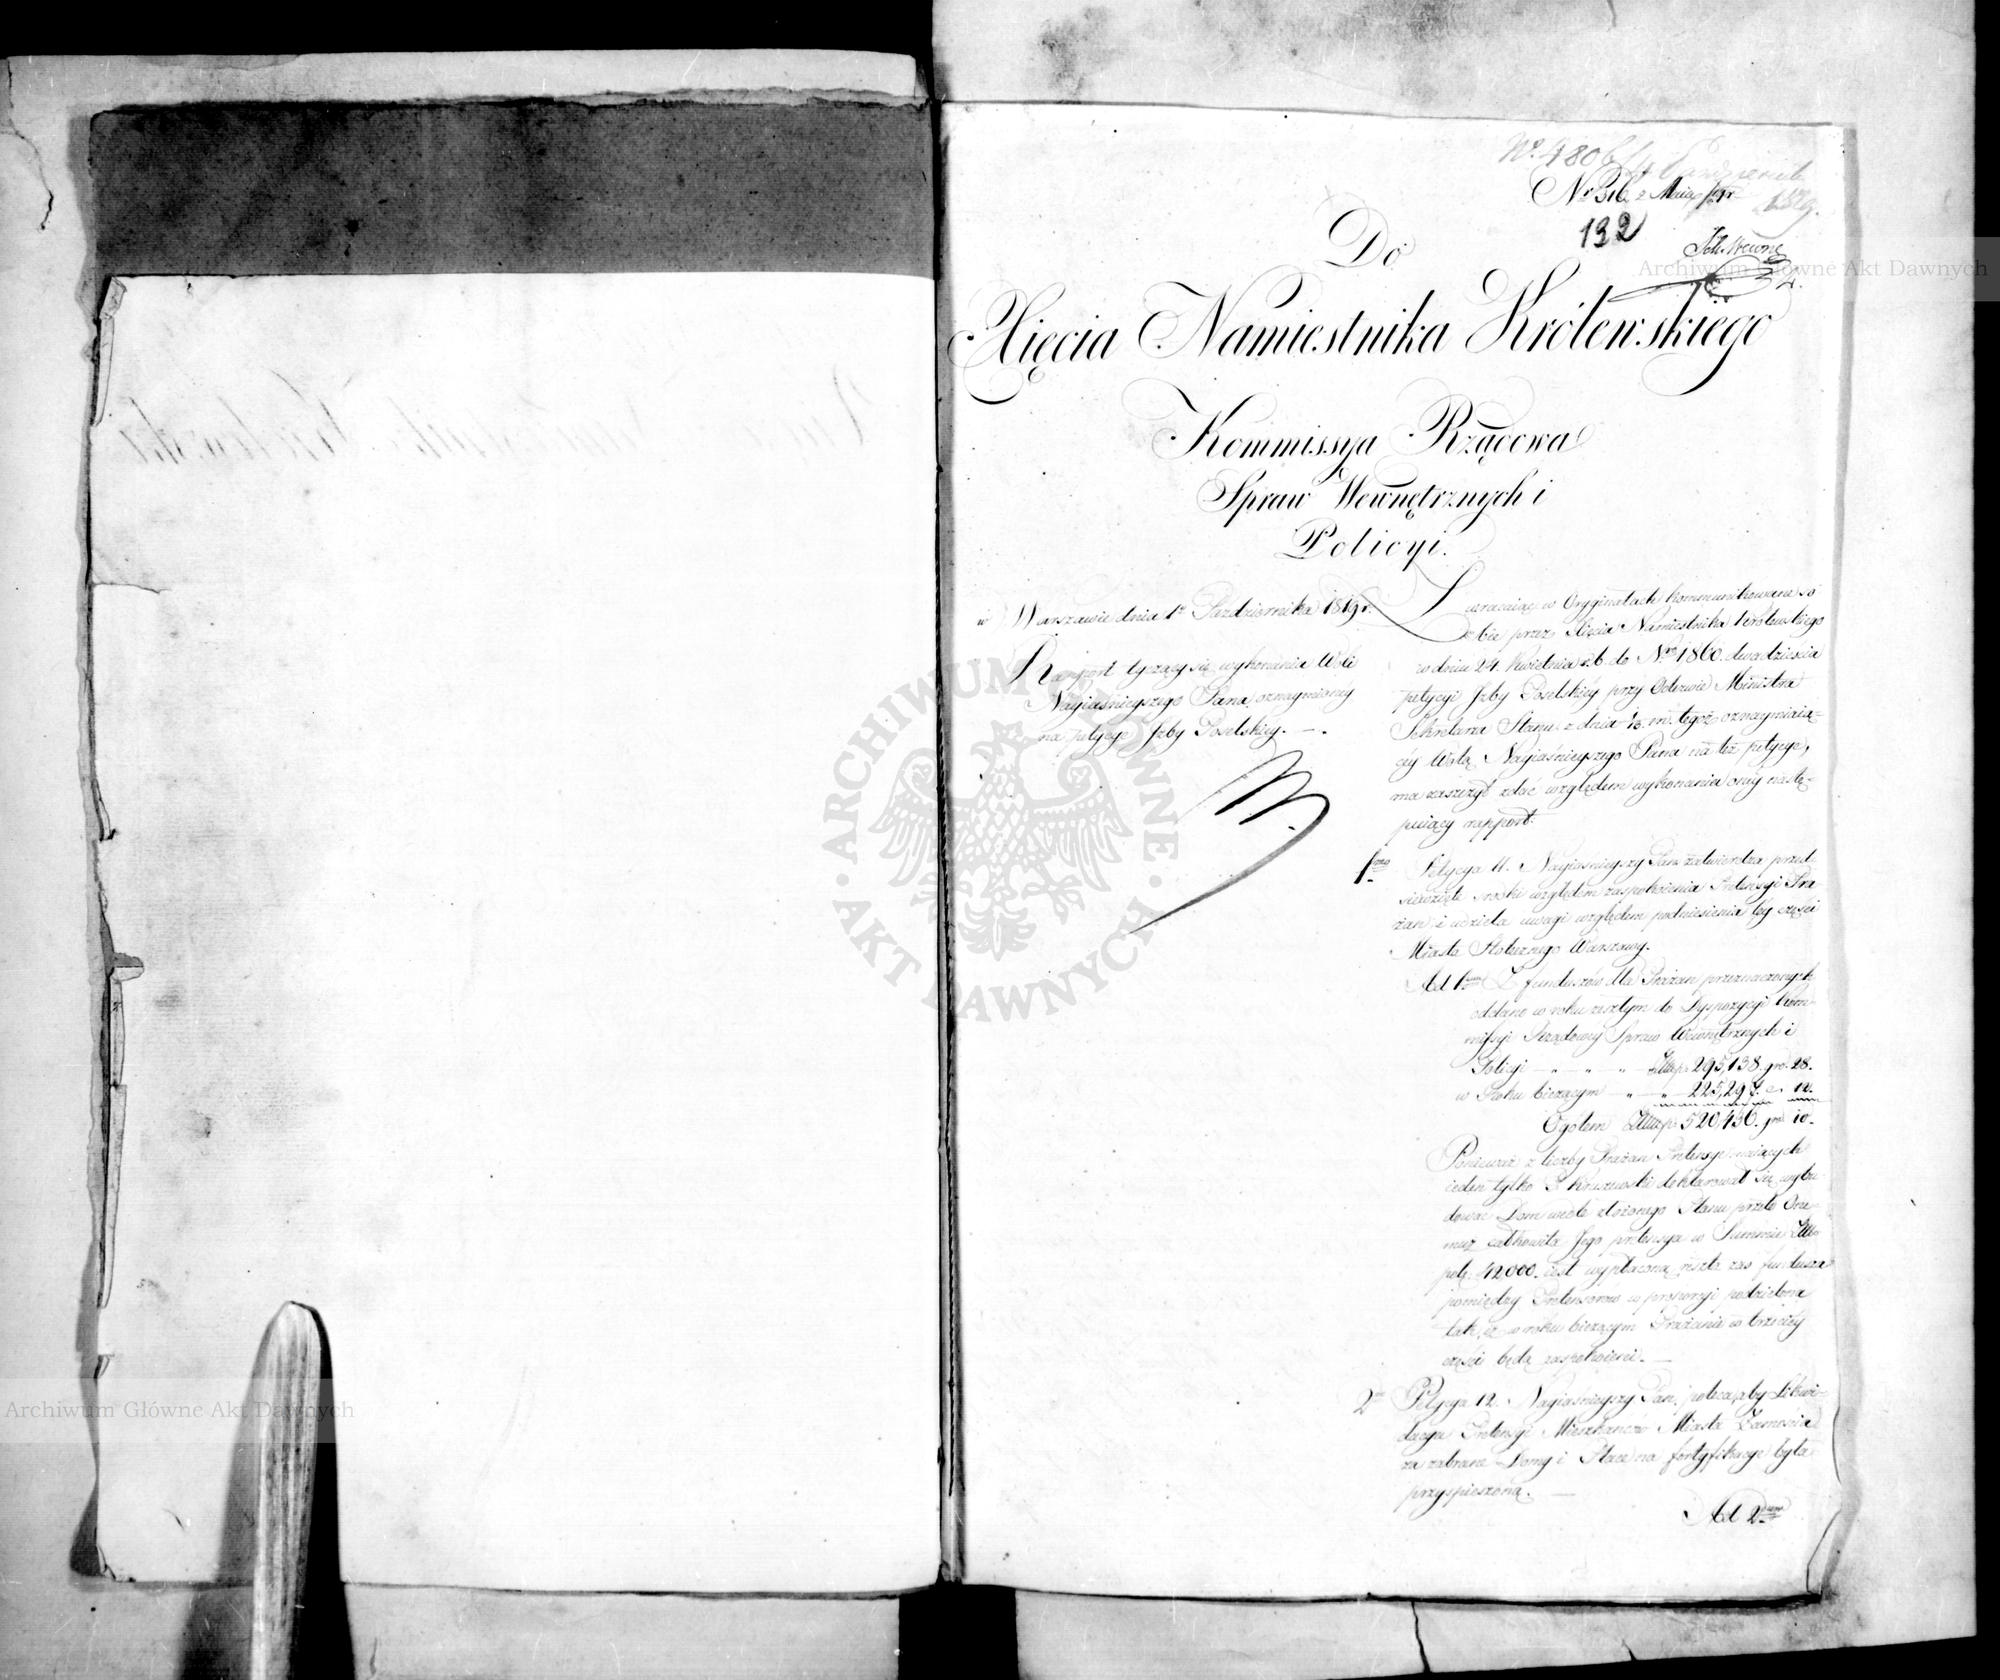 Nº 4806/14 Października
1819.
Nr 316 z Maia
132
Do
Xięcia Namiestnika Królewskiego
Kommissya Rządowa
Spraw Wewnętrznych i
Policyi.
w Warszawie dnia 1º Października 1819 r.
Rapport tyczący się wykonania Woli
Nayiaśnieyszego Pana, oznaymioney
na petycye Izby Poselskiey. — .
Zwracaiąc w Oryginałach kommunikowane so
bie przez Xięcia Namiestnika Królewskiego
w dniu 24. Kwietnia r. b. do Nro 1860. dwadzieścia
petycyi Izby Poselskiéy przy Odezwie Ministra
Sekretarza Stanu z dnia 13. m. tegoż oznaymiaią-
céy Wolą Nayiaśnieyszego Pana na też petycye,
ma zaszczyt zdać względem wykonania onéy nastę-
puiący rapport.
1mo Petycya 11. Nayiaśnieyszy Pan zatwierdza przed-
sięwzięte srodki względem zaspokoienia Pretensyi Pra-
żan, i udziela uwagi względem podniesienia tey części
Miasta Stołecznego Warszawy.
Ad 1mum Z funduszów dla Prażan przeznaczonych
oddano w roku zeszłym do Dyspozycyi Kom-
missyi Rządowey Spraw Wewnętrznych i
Policyi — " — " — " — Złtp. 295,138. gro. 28.
w Roku bieżącym — " — " — 225,297. — 12.
Ogółem Złtp. 520,436. gro. 10.
Ponieważ z liczby Prażan Pretensye maiących
ieden tylko P. Kruszewski deklarował się wybu-
dować Dom wedle złożonego Planu przeto One-
muż całkowita Jego pretensya w Summie Zło.
pol. 42000. iest wypłaconą, reszta zaś funduszu
pomiędzy Pretensorów w proporcyi podzielona
tak, iż w roku bieżącym Prażanie w trzeciéy
części będą zaspokoieni. —
2do Petycya 12. Nayiaśnieyszy Pan, poleca, aby Likwi-
dacya Pretensyi Mieszkańców Miasta Zamościa
za zabrane Domy i Place na fortyfikacye była
przyspieszoną. —
Ad 2dum
ARCHIWUM GŁÓWNE AKT DAWNYCH
Archiwum Główne Akt Dawnych
Archiwum Główne Akt Dawnych